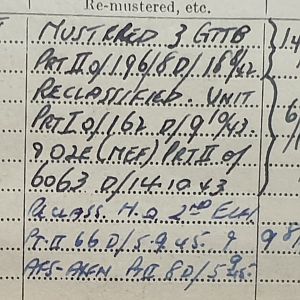 Re-mustered, etc.
MUSTERED 3 GTTB 14
PRT II O/196/8 D/18 8/42.
RECLASSIFIED. UNIT
PRT I O/162 D/9 10/43. 6/
902E (MEF). PRT II O/
6063 D/14.10.43
RECLASS. H.Q. 2ND ECH.
Pt. II. 66 D/5.9.45. 9 8
Pt II 8 D/5 9/45.